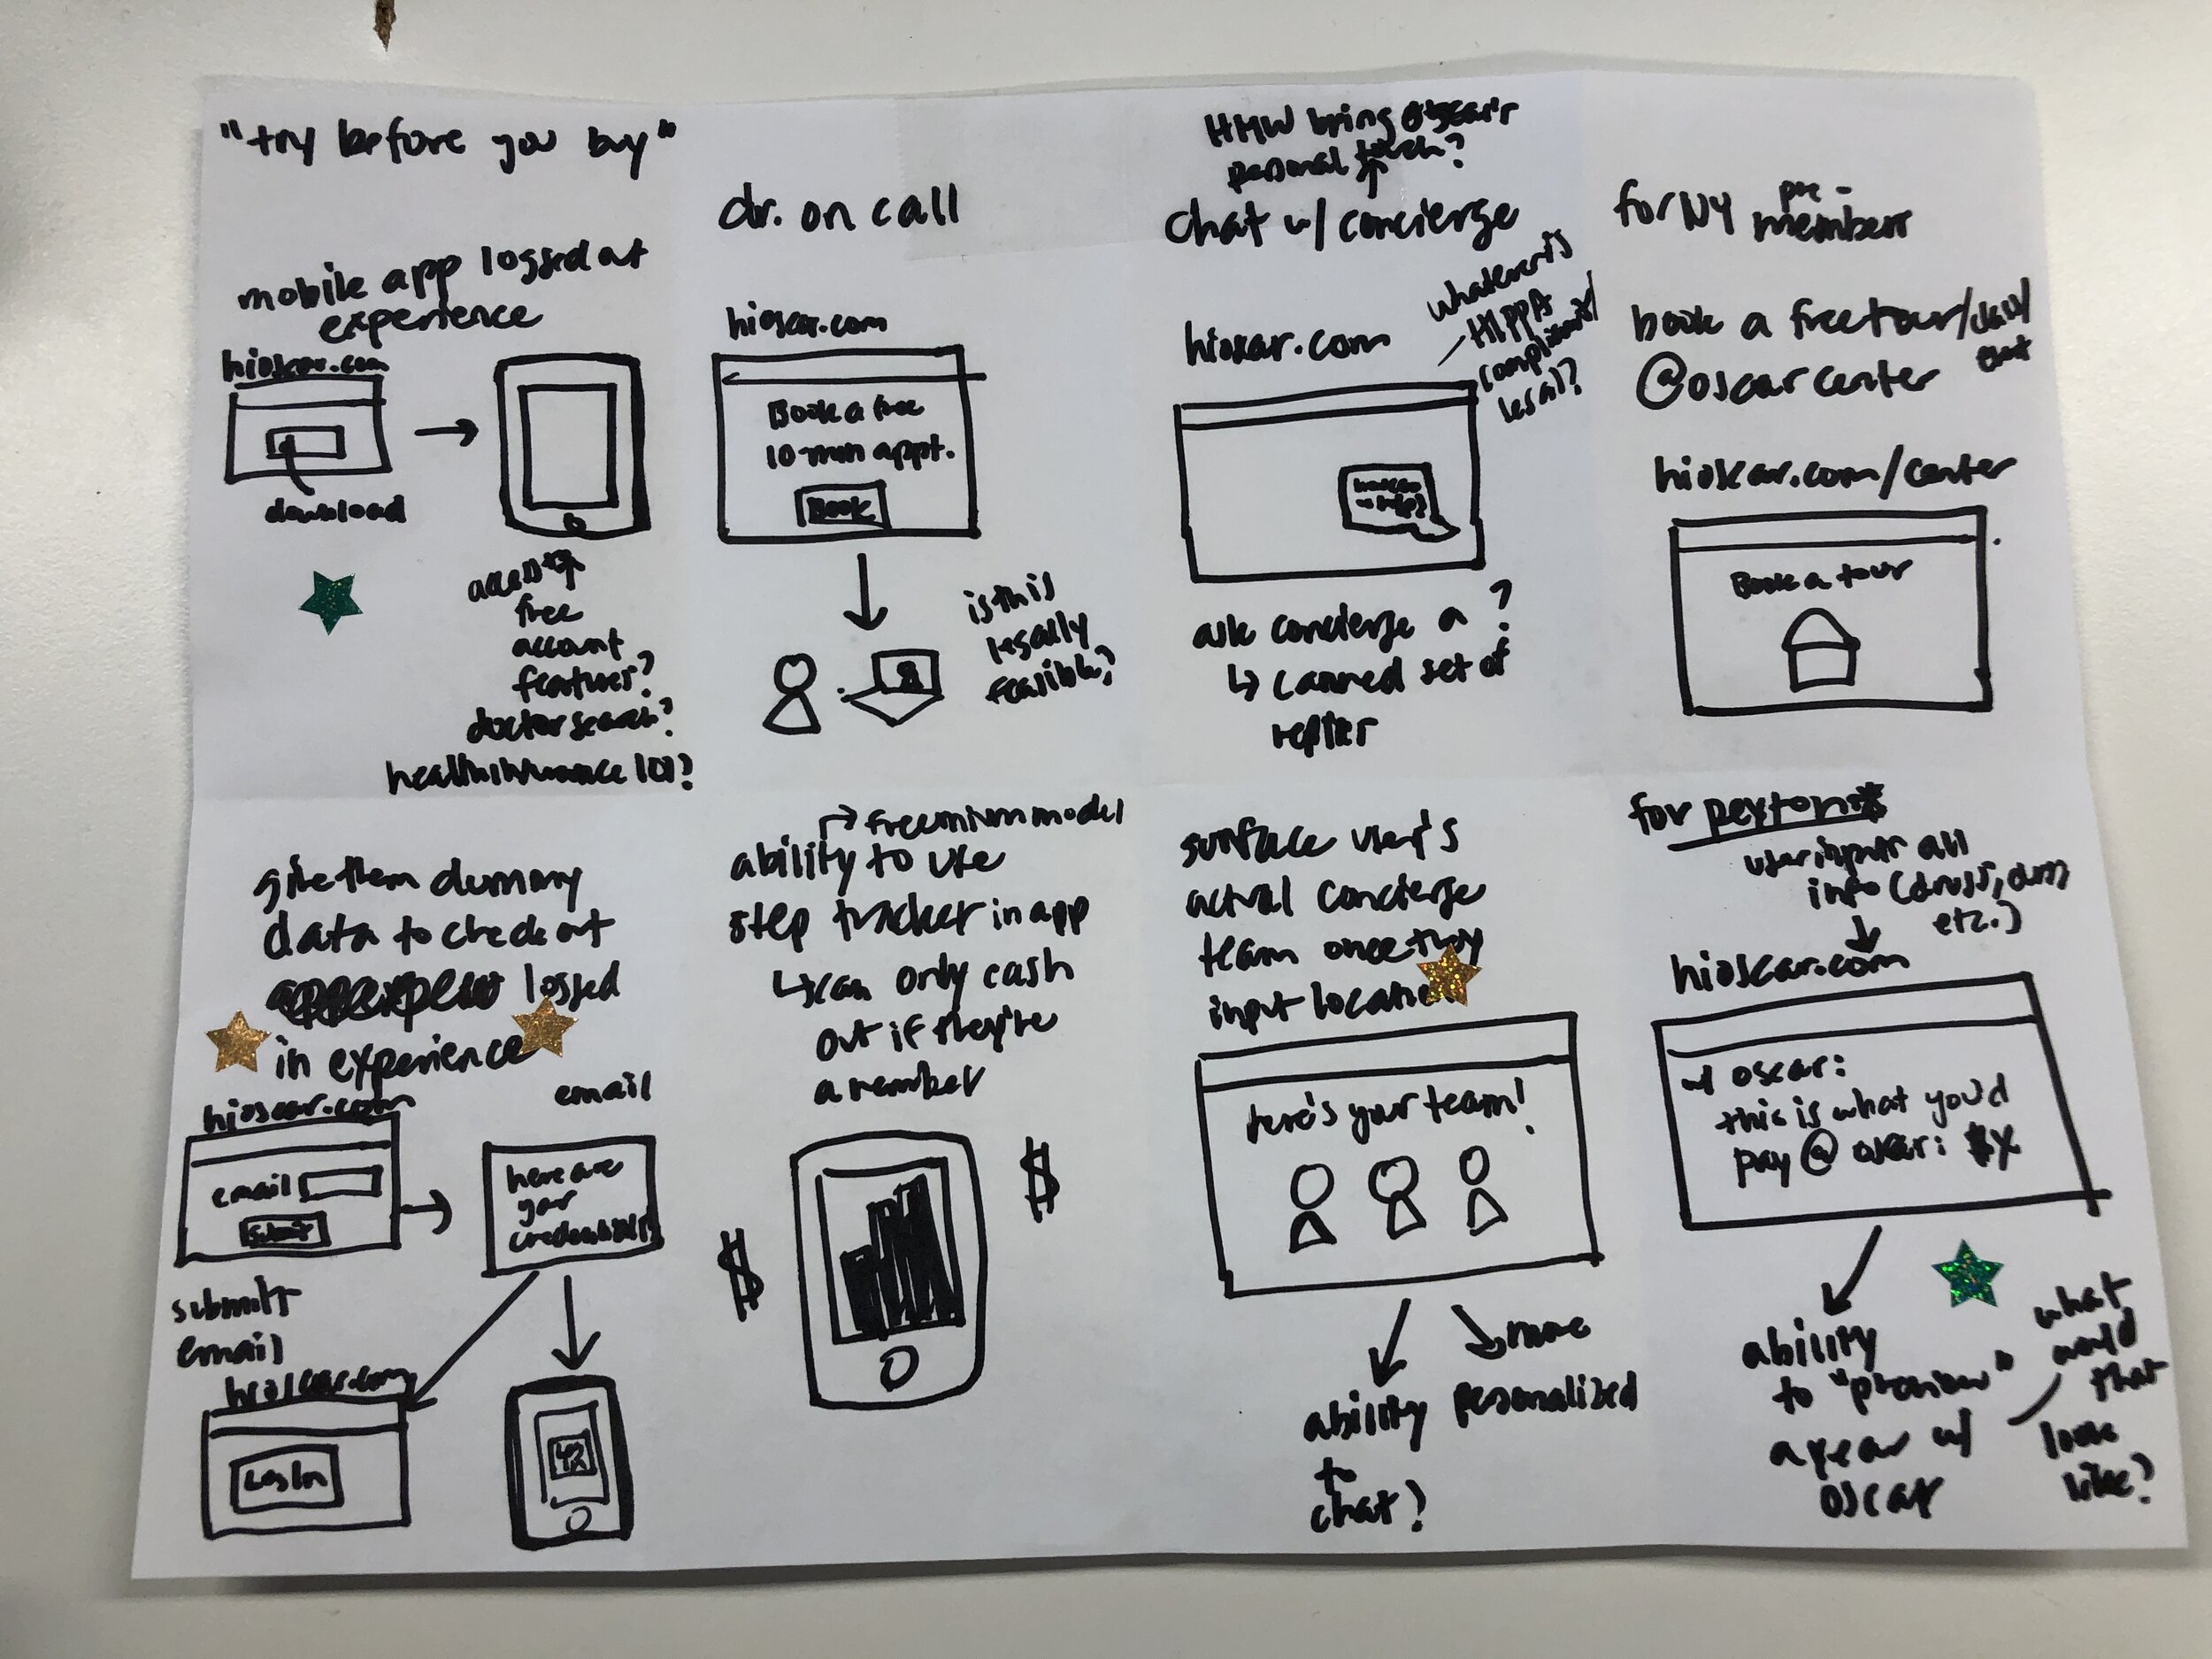 "try before you buy"
mobile app logged out
experience
hioscar.com
download
access to
free
account
features?
doctor search?
health insurance 101?
dr. on call
hioscar.com
Book a free
10-min appt.
Book
is this
legally
feasible?
HMW bring oscar's
personal touch?
chat w/ concierge
hioscar.com
whatever is
HIPPA
compliant/
legal?
how can
we help?
ask concierge a ?
↳ canned set of
replies
for NY pre-
members
book a free tour/class/
@oscar center
hioscar.com/center
Book a tour
give them dummy
data to check out
logged
in experience
hioscar.com
email
submit
submit
email
email
here are
your
credentials
hioscar.com
Log In
→ freemium model
ability to use
step tracker in app
↳ can only cash
out if they're
a member
$
$
surface user's
actual concierge
team once they
input location
here's your team!
ability
to
chat?
more
personalized
for peyton*
user inputs all
info (drugs, drs,
etc.)
hioscar.com
w/ oscar:
this is what you'd
pay @ oscar: $X
ability
to "preview"
a year w/
oscar
what
would
that
look
like?